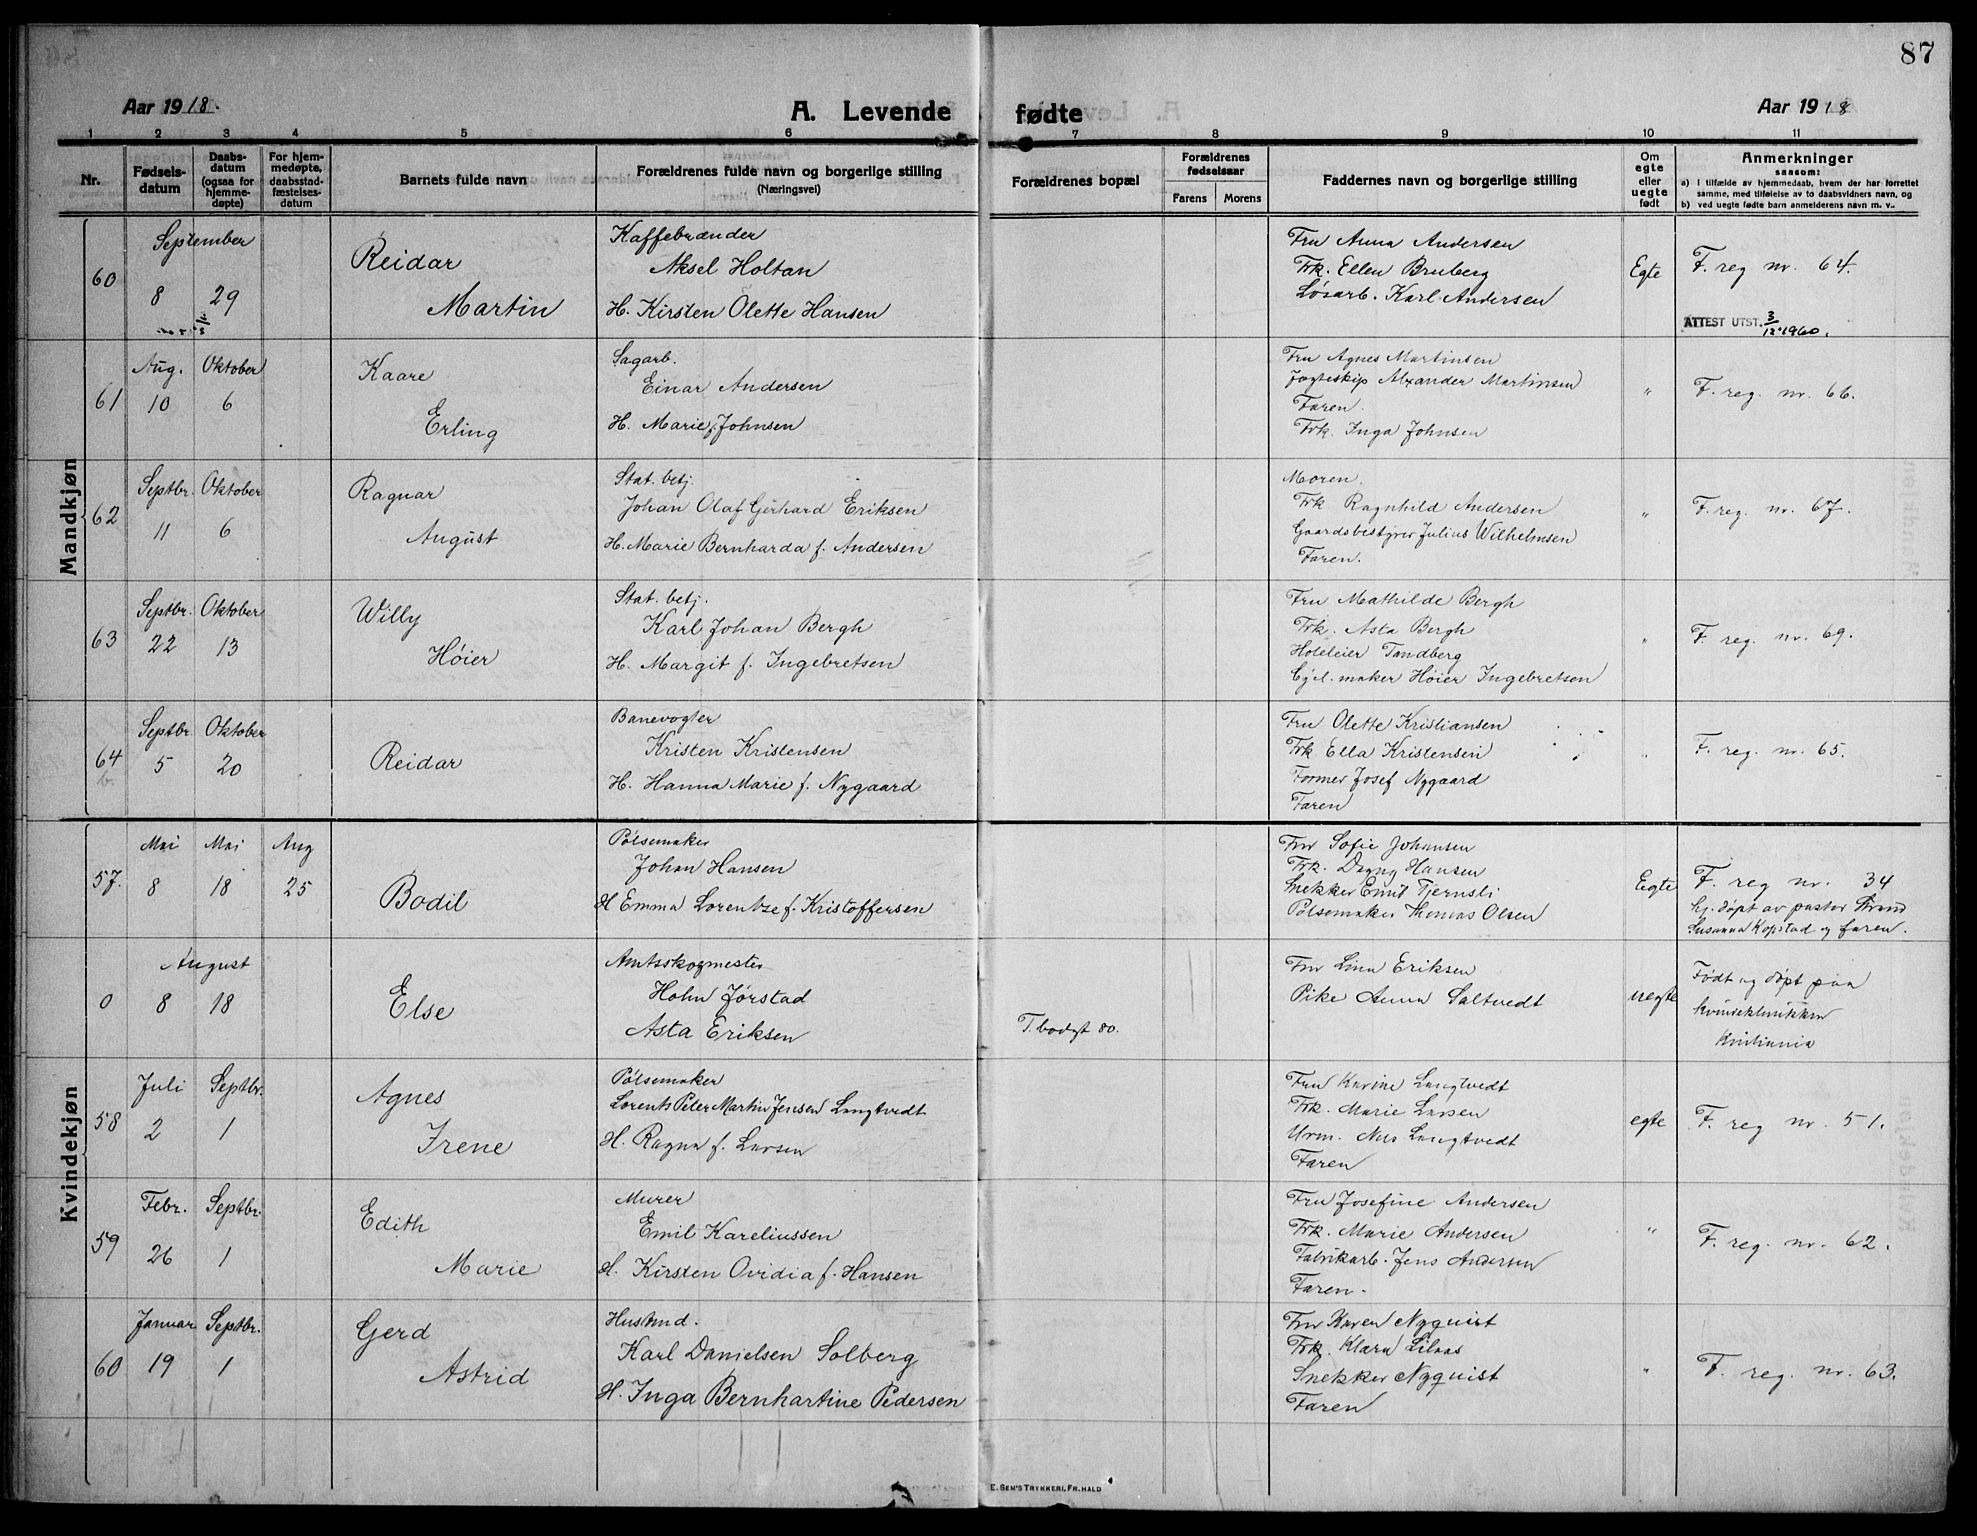 87
Aar 1918.
A. Levende fødte
Aar 1918
1 2 3 4 5 6 7 8 9 10 11
Nr.
Fødselsdatum
Daabsdatum (ogsaa for hjemmedøpte)
For hjemmedøpte, daabsstadfæstelsesdatum
Barnets fulde navn
Forældrenes fulde navn og borgerlige stilling
(Næringsvei)
Forældrenes bopæl
Forældrenes fødselsaar
Farens Morens
Faddernes navn og borgerlige stilling
Om egte eller uegte født
Anmerkninger
saasom:
a) i tilfælde av hjemmedaab, hvem der har forrettet
samme, med tilføielse av to daabsvidners navn, og
b) ved uegte fødte barn anmelderens navn m. v..
Mandkjøn
60
September
8 29
Reidar
Martin
Kaffebrænder
Aksel Holtan
H. Kirsten Olette Hansen
Fru Anna Andersen
Frk. Ellen Bruberg
Løsarb. Karl Andersen
Egte
F. reg nr. 64.
ATTEST UTST. 3/12 1960.
61
Aug. Oktober
10 6
Kaare
Erling
Sagarb.
Einar Andersen
H. Marie f. Johnsen
Fru Agnes Martinsen
Jagteskip Alxander Martinsen
Faren.
Frk. Inga Johnsen
"
F. reg. nr. 66.
62
Septbr. Oktober
11 6
Ragnar
August
Stat. betj.
Johan Olaf Gerhard Eriksen
H. Marie Bernharda f. Andersen
Moren.
Frk Ragnhild Andersen
Gaardsbestyrer Julius Wilhelmsen
Faren.
"
F. reg. nr. 67.
63
Septbr. Oktober
22 13
Willy
Høier
Stat. betj.
Karl Johan Bergh
H. Margit f. Ingebretsen
Fru Mathilde Bergh
Frk. Asta Bergh
Hoteleier Tandberg
Cycl. maker Høier Ingebretsen
"
F. reg. nr. 69.
64
b.
Septbr. Oktober
5 20
Reidar
Banevogter
Kristen Kristensen
H. Hanna Marie f. Nygaard
Fru Olette Kristiansen
Frk Ella Kristensen
Former Josef Nygaard
Faren
"
F. reg. nr. 65.
Kvindekjøn
57.
Mai Mai Aug
8 18 25
Bodil
Pølsemaker
Johan Hansen
H Emma Lorentze f. Kristoffersen
Fru Sofie Johansen
Frk. Dagny Hansen
Snekker Emil Tjernsli
Pølsemaker Thomas Olsen
Egte
F. reg nr. 34
hj. døpt av pastor Strand
Susanna Kopstad og faren.
0
August
8 18
Else
Amtsskogmester
Hohn Jørstad
Asta Eriksen
T. bodgt 80.
Fru Lina Eriksen
Pike Anna Saltvedt
uegte
Født og døpt paa
Kvindeklinikken
Kristiania
58
Juli Septbr.
2 1
Agnes
Irene
Pølsemaker
Lorents Peter Martin Jensen Langtvedt
H. Ragna f. Larsen
Fru Karine Langtvedt
Frk. Marie Larsen
Urm. Nils Langtvedt
Faren
egte
F. reg nr. 51.
59
Febr. Septbr.
26 1
Edith
Marie
Murer
Emil Kareliussen
H. Kirsten Ovidia f. Hansen
Fru Josefine Andersen
Frk. Marie Andersen
Fabrikarb. Jens Andersen
Faren.
"
F. reg. nr. 62.
60
Januar Septbr.
19 1
Gerd
Astrid
Husmd.
Karl Danielsen Solberg
H. Inga Bernhartine Pedersen
Fru Karen Nyquist
Frk. Klara Lilaas
Snekker Nyquist
Faren
"
F. reg. nr. 63.
E. SEM'S TRYKKERI, FR.HALD